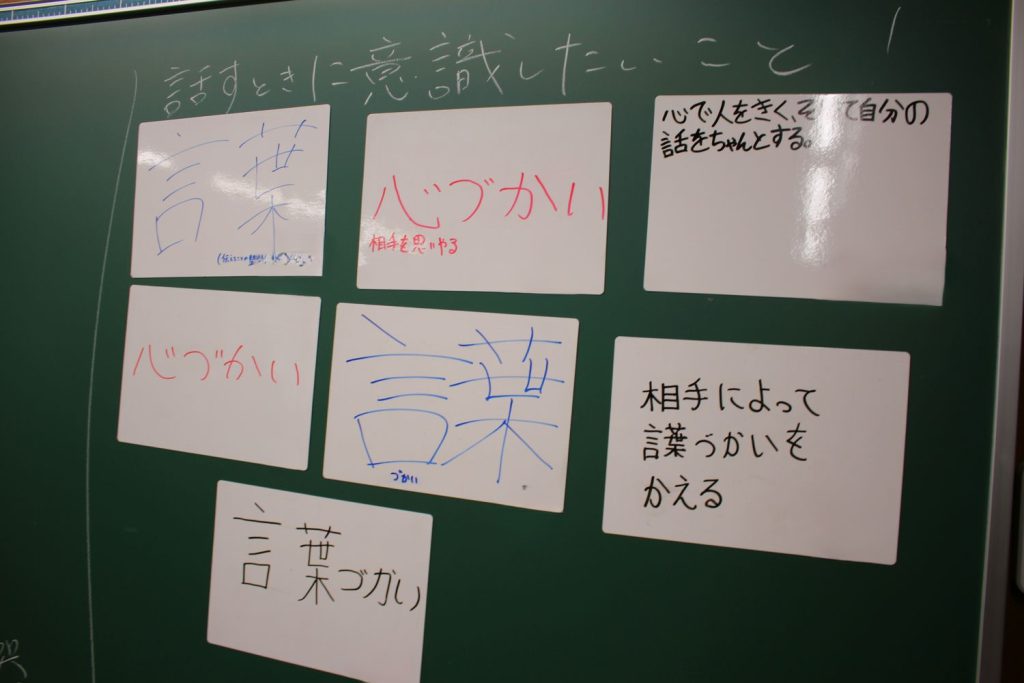 話すときに意識したいこと
言葉
心づかい
相手を思いやる
心で人をきく、そして自分の
話をちゃんとする。
心づかい
言葉
づかい
相手によって
言葉づかいを
かえる
言葉づかい